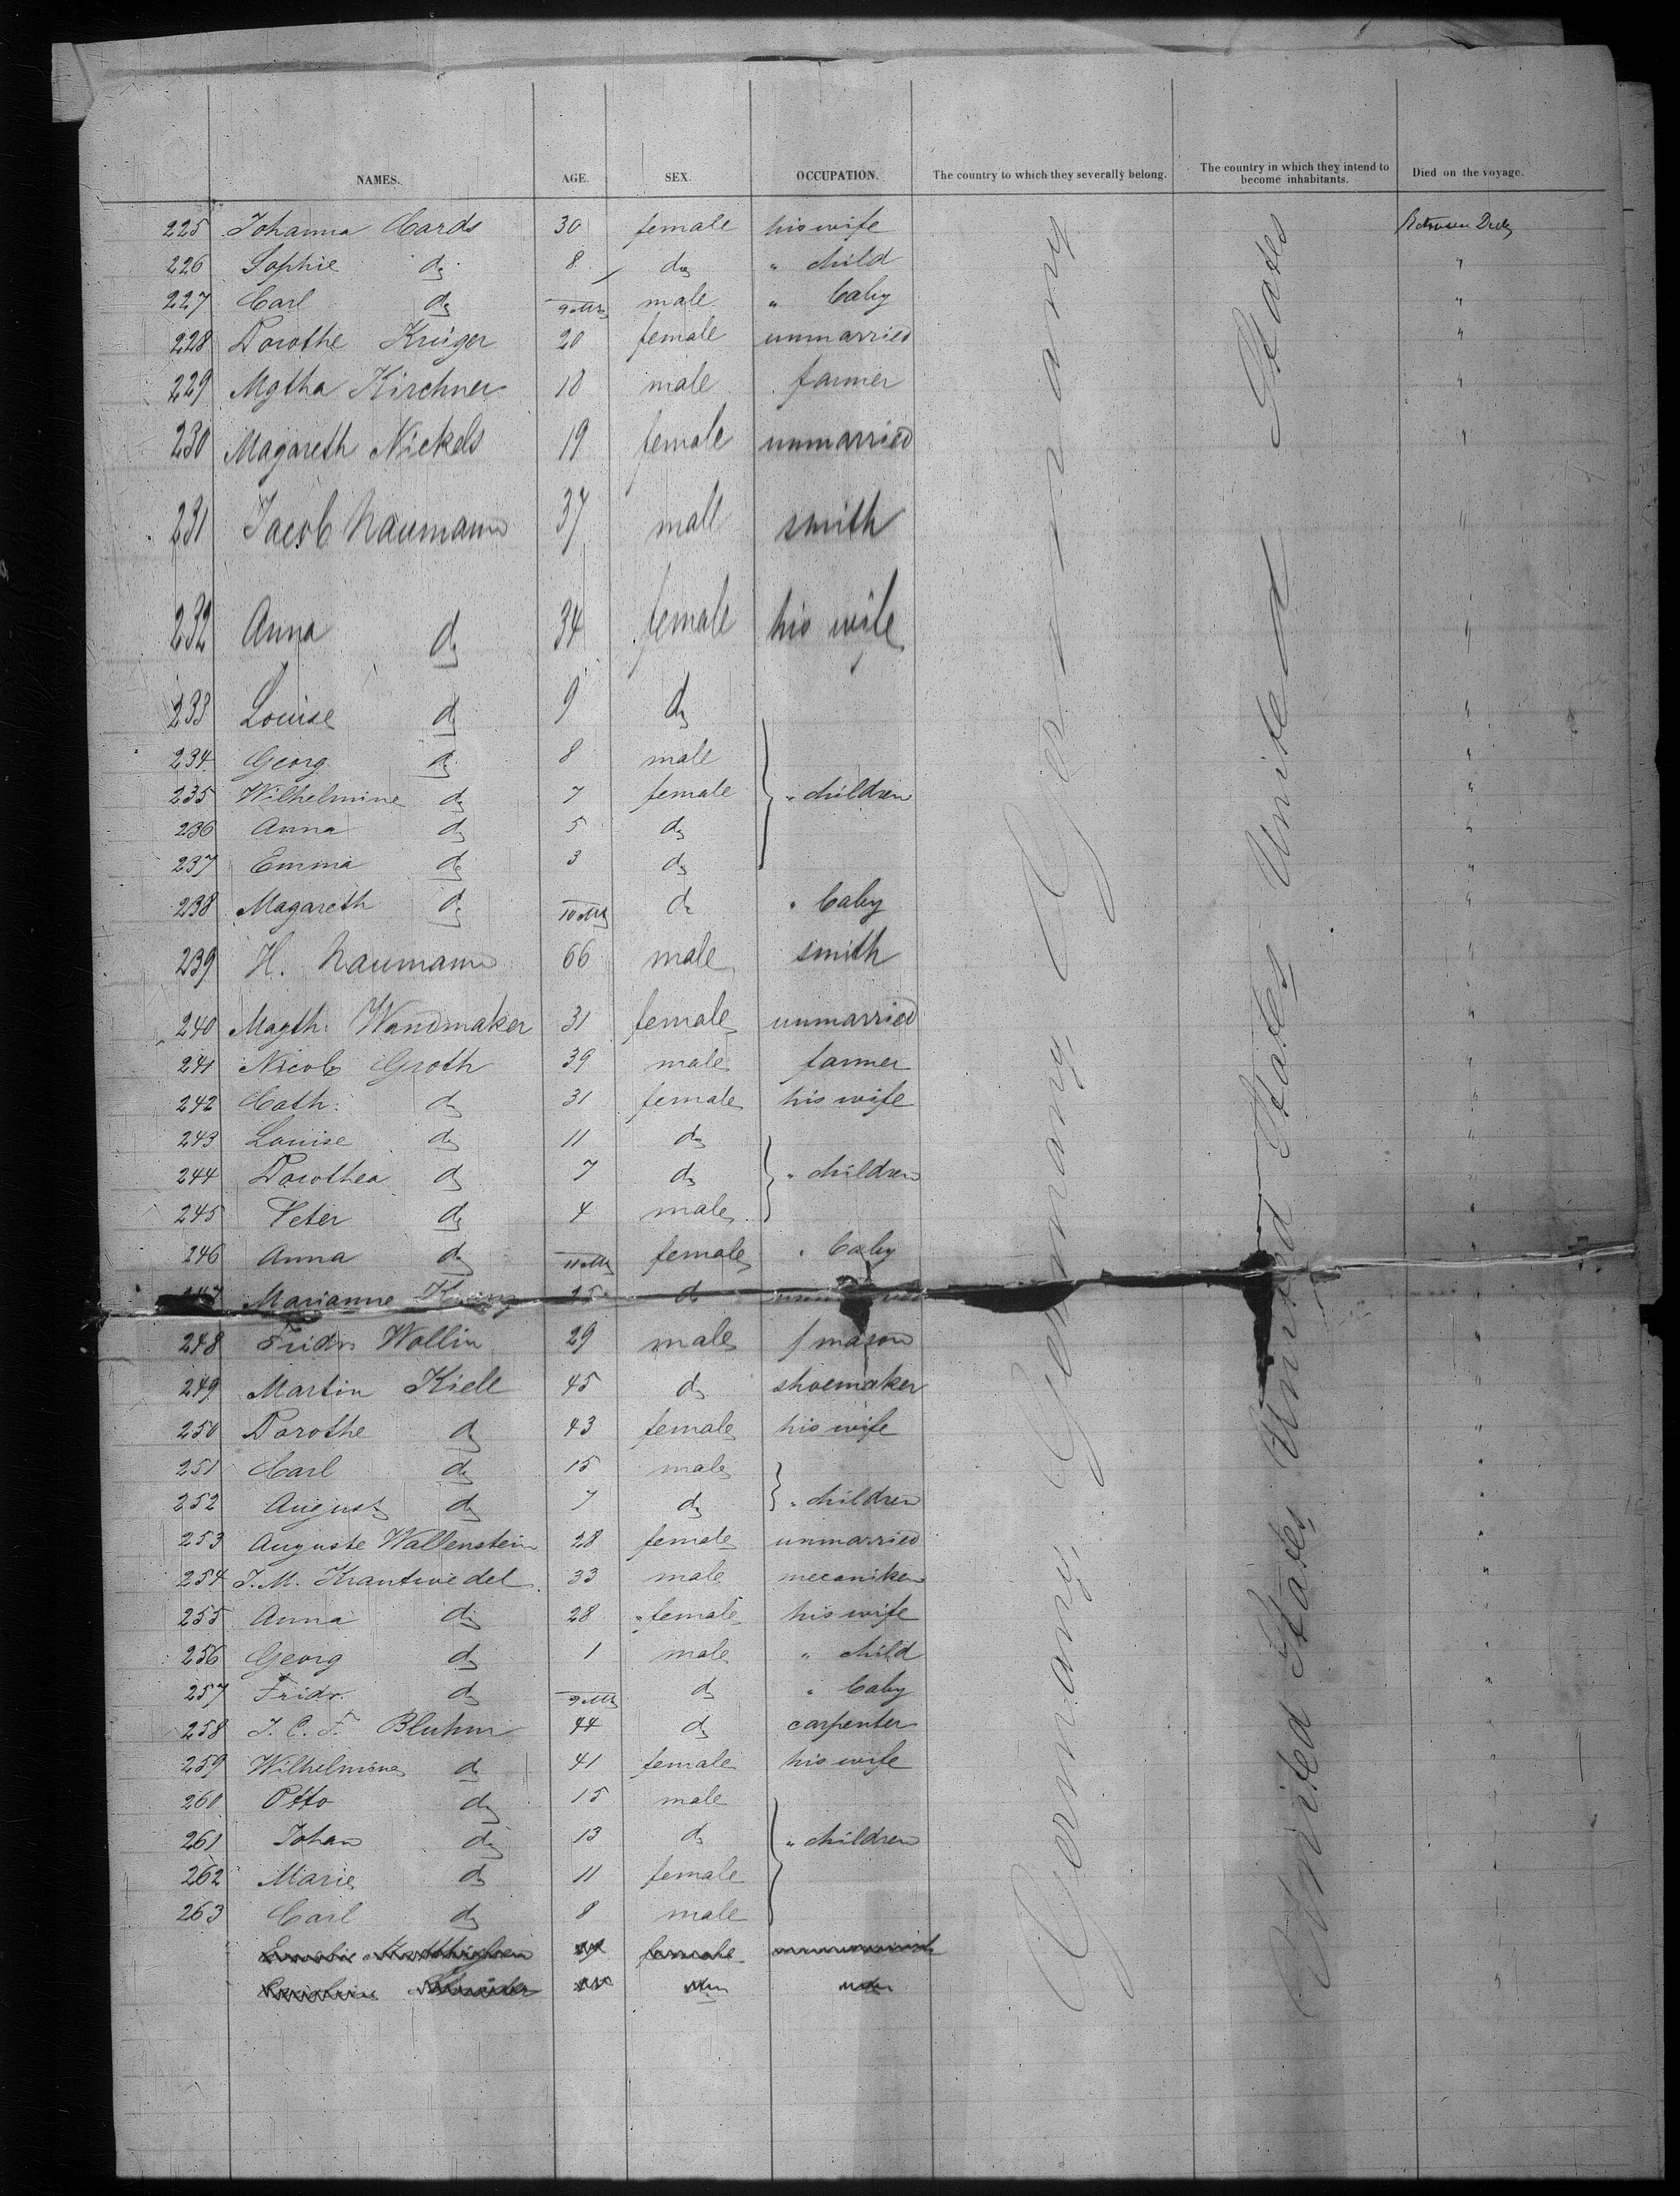 NAMES. AGE. SEX. OCCUPATION. The country to which they severally belong. The country in which they intend to become inhabitants. Died on the voyage.
225 Johanna Cards 30 female his wife Between Deck
226 Sophie do 8 do " child "
227 Carl do 9 Mts male " baby "
228 Dorothe Krüger 20 female unmarried "
229 Mgtha Kirchner 18 male farmer "
230 Magareth Nickels 19 female unmarried "
231 Jacob Naumann 37 male smith "
232 Anna do 34 female his wife "
233 Louise do 9 do "
234 Georg do 8 male "
235 Wilhelmine do 7 female " children "
236 Anna do 5 do "
237 Emma do 3 do "
238 Magareth do 10 Mts do " baby "
239 H. Naumann 66 male smith "
240 Magth. Wandmaker 31 female unmarried "
241 Nicol Groth 39 male farmer "
242 Cath: do 31 female his wife "
243 Louise do 11 do "
244 Dorothea do 7 do " children "
245 Peter do 4 male "
246 Anna do 11 Mts female " baby "
247 Marianne do "
248 Fridr. Wollin 29 male mason "
249 Martin Kiell 45 do shoemaker "
250 Dorothe do 43 female his wife "
251 Carl do 15 male "
252 August do 7 do " children "
253 Auguste Wallenstein 28 female unmarried "
254 J. M. Krantwedel 33 male mecaniker "
255 Anna do 28 female his wife "
256 Georg do 1 male " child "
257 Fridr. do 9 Mts do " baby "
258 J. C. F. Bluhm 44 do carpenter "
259 Wilhelmine do 41 female his wife "
260 Otto do 15 male "
261 Johan do 13 do " children "
262 Marie do 11 female "
263 Carl do 8 male "
female
Germany, Germany, Germany
United States United States United States